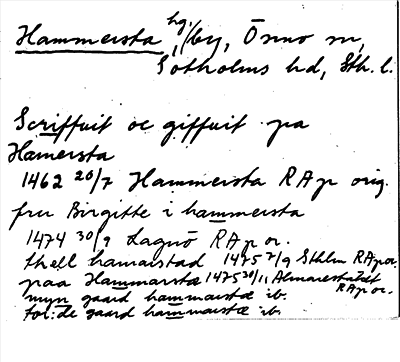 Hammersta hg./by, Ösmo sn,
Sotholms hd, Sth. l.
Scriffuit oc giffuit pa
Hamersta
1462 20/7 Hammersta RAp orig.
fru Birgitte i hammersta
1474 30/9 Lagnö RAp or.
thell hamarstad 1475 7/9 Sthlm RAp or.
paa Hammarstæ 1475 30/11 Almarestäket RAp or.
myn gaard hammarstæ ib.
for:de gaard hammarstæ ib.